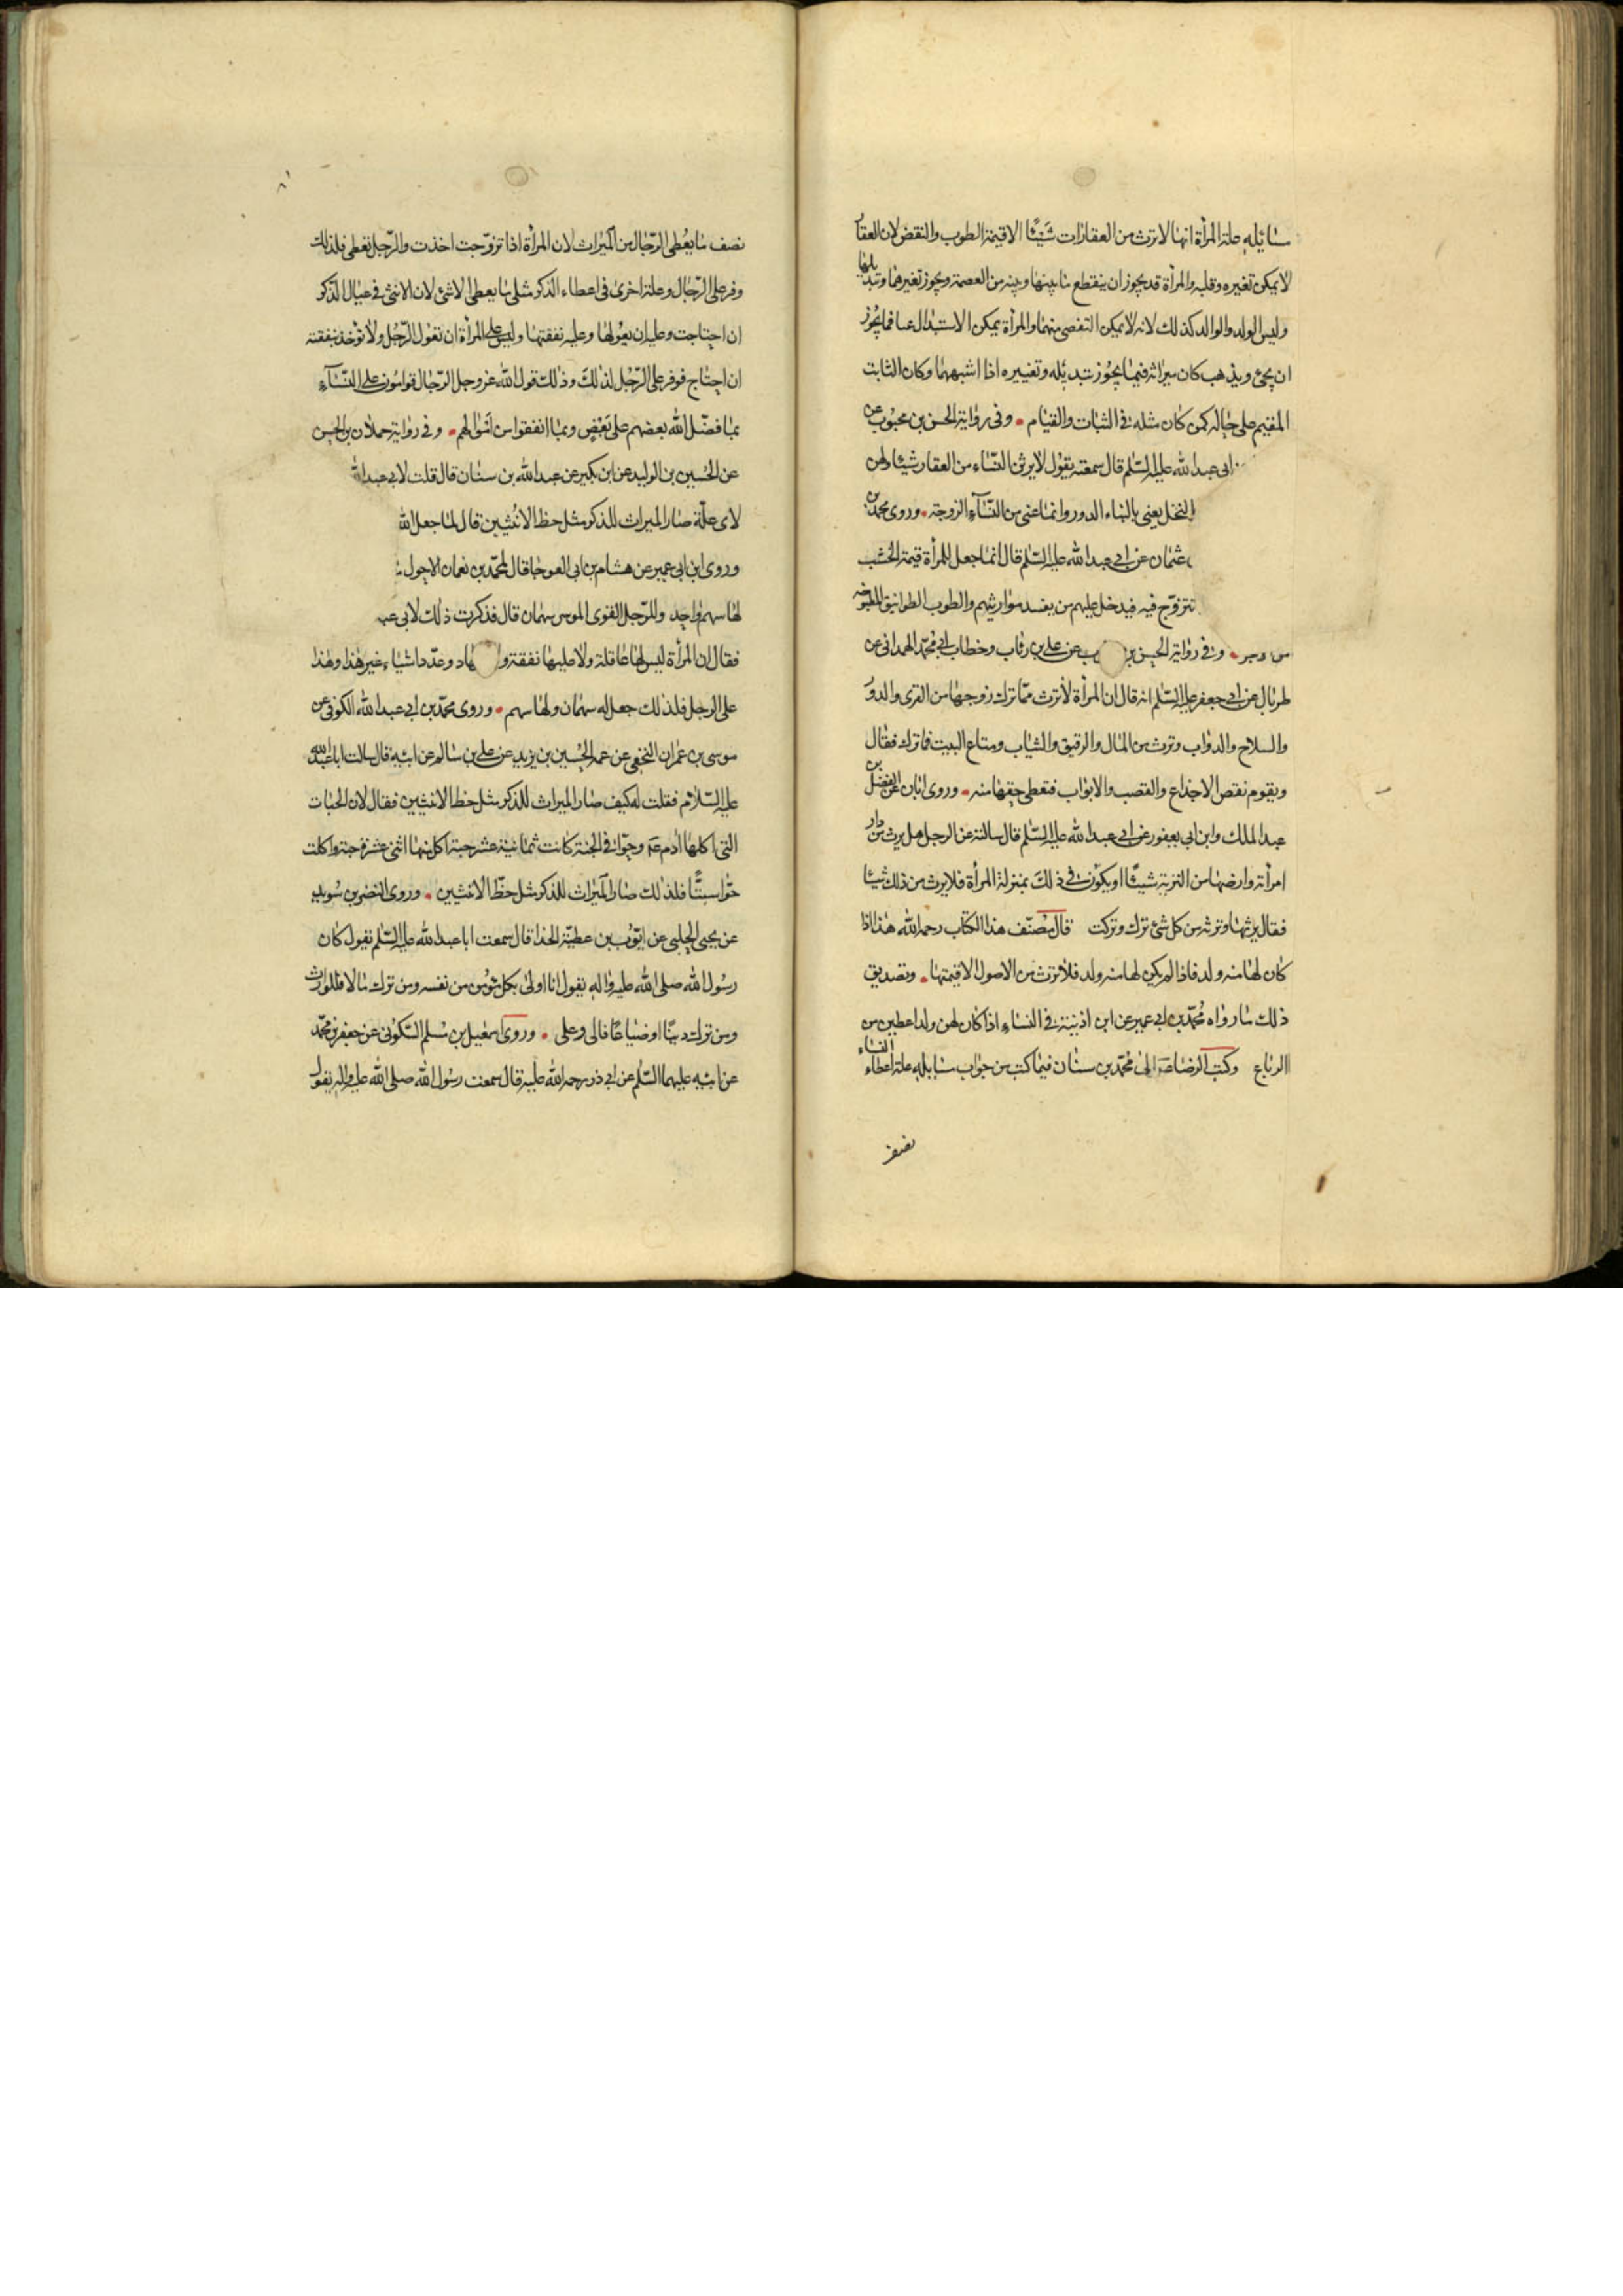 مسايله علة المرأة انها لا ترث من العقارات شيئا الا قيمة الطوب والنقض لان العقار
لا يمكن تغييره وقلبه والمرأة قد يجوز ان ينقطع ما بينها وبينه من العصمة ويجوز تغييرها وتبديلها
وليس الولد والوالد كذلك لانه لا يمكن التفصى منهما والمرأة يمكن الاستبدال بها فما يجوز
ان يجئ ويذهب كان ميراثه فيما يجوز تبديله وتغييره اذا اشبههما وكان الثابت
المقيم على حاله كمن كان مثله فى الثبات والقيام وفى رواية الحسن بن محبوب عن
ابى عبد الله عليه السلم قال سمعته يقول لا يرثن النساء من العقار شيئا ولهن
النخل يعنى بالبناء الدور وانما عنى من النساء الزوجة وروى محمد بن
عثمان عن ابى عبد الله عليه السلم قال انما جعل للمرأة قيمة الخشب
تتزوج فيه فيدخل عليهم من يفسد مواريثهم والطوب الطوابيق المطبوخة
وفى رواية الحسن بن ب عن على بن رئاب وخطاب ابى محمد الهمدانى عن
طربال عن ابى جعفر عليه السلم انه قال ان المرأة لا ترث مما ترك زوجها من القرى والدور
والسلاح والدواب وترث من المال والرقيق والثياب ومتاع البيت مما ترك فقال
ويقوم نقض الاجذاع والقصب والابواب فتعطى حقها منه وروى ابان عن الفضل بن
عبد الملك وابن ابى يعفور عن ابى عبد الله عليه السلم قال سالته عن الرجل هل يرث من دار
امرأته وارضها من التربة شيئا او يكون فى ذلك بمنزلة المرأة فلا يرث من ذلك شيئا
فقال يرثها وترثه من كل شئ ترك وتركت قال مصنف هذا الكتاب رحمه الله هذا اذا
كان لها منه ولد فاذا لم يكن لها منه ولد فلا ترث من الاصول الا قيمتها وتصديق
ذلك ما رواه محمد بن ابى عمير عن ابن اذينة فى النساء اذا كان لهن ولد اعطين من
الرباع وكتب الرضا الى محمد بن سنان فيما كتب من جواب مسايله علة اعطاء النساء
نصف ما يعطى الرجال من الميراث لان المرأة اذا تزوجت اخذت والرجل يعطى فلذلك
وفر على الرجال وعلة اخرى فى اعطاء الذكر مثلى ما يعطى الانثى لان الانثى فى عيال الذكر
ان احتاجت وعليه ان يعولها وعليه نفقتها وليس على المرأة ان تعول الرجل ولا تؤخذ بنفقته
ان احتاج فوفر على الرجل لذلك وذلك قول الله عز وجل الرجال قوامون على النساء
بما فضل الله بعضهم على بعض وبما انفقوا من اموالهم وفى رواية حملان بن الحسين
عن الحسين بن الوليد عن ابن بكير عن عبد الله بن سنان قال قلت لابى عبد الله
لاى علة صار الميراث للذكر مثل حظ الانثيين قال لما جعل الله
وروى ابن ابى عمير عن هشام بن ابى العوجا قال لمحمد بن نعمان الاحول
لها سهم واحد وللرجل القوى الموسر سهمان قال فذكرت ذلك لابى عبد
فقال ان المرأة ليس لها عاقلة ولا عليها نفقة ولا هاد وعدد اشياء غير هذا وهذا
على الرجل فلذلك جعل له سهمان ولها سهم وروى محمد بن ابى عبد الله الكوفى عن
موسى بن عمران النخعى عن عمه الحسين بن يزيد عن على بن سالم عن ابيه قال سالت ابا عبد الله
عليه السلام فقلت له كيف صار الميراث للذكر مثل حظ الانثيين فقال لان الحبات
التى اكلها ادم عم وحوا فى الجنة كانت ثمانية عشر حبة اكل منها اثنى عشرة حبة واكلت
حوا ستا فلذلك صار الميراث للذكر مثل حظ الانثيين وروى النضر بن سويد
عن يحيى الحلبى عن ايوب بن عطية الحذا قال سمعت ابا عبد الله عليه السلم يقول كان
رسول الله صلى الله عليه واله يقول انا اولى بكل مؤمن من نفسه ومن ترك مالا فللوارث
ومن ترك دينا او ضياعا فالى وعلى وروى اسمعيل بن مسلم السكونى عن جعفر بن محمد
عن ابيه عليهما السلم عن ابى ذر رحمة الله عليه قال سمعت رسول الله صلى الله عليه واله يقول